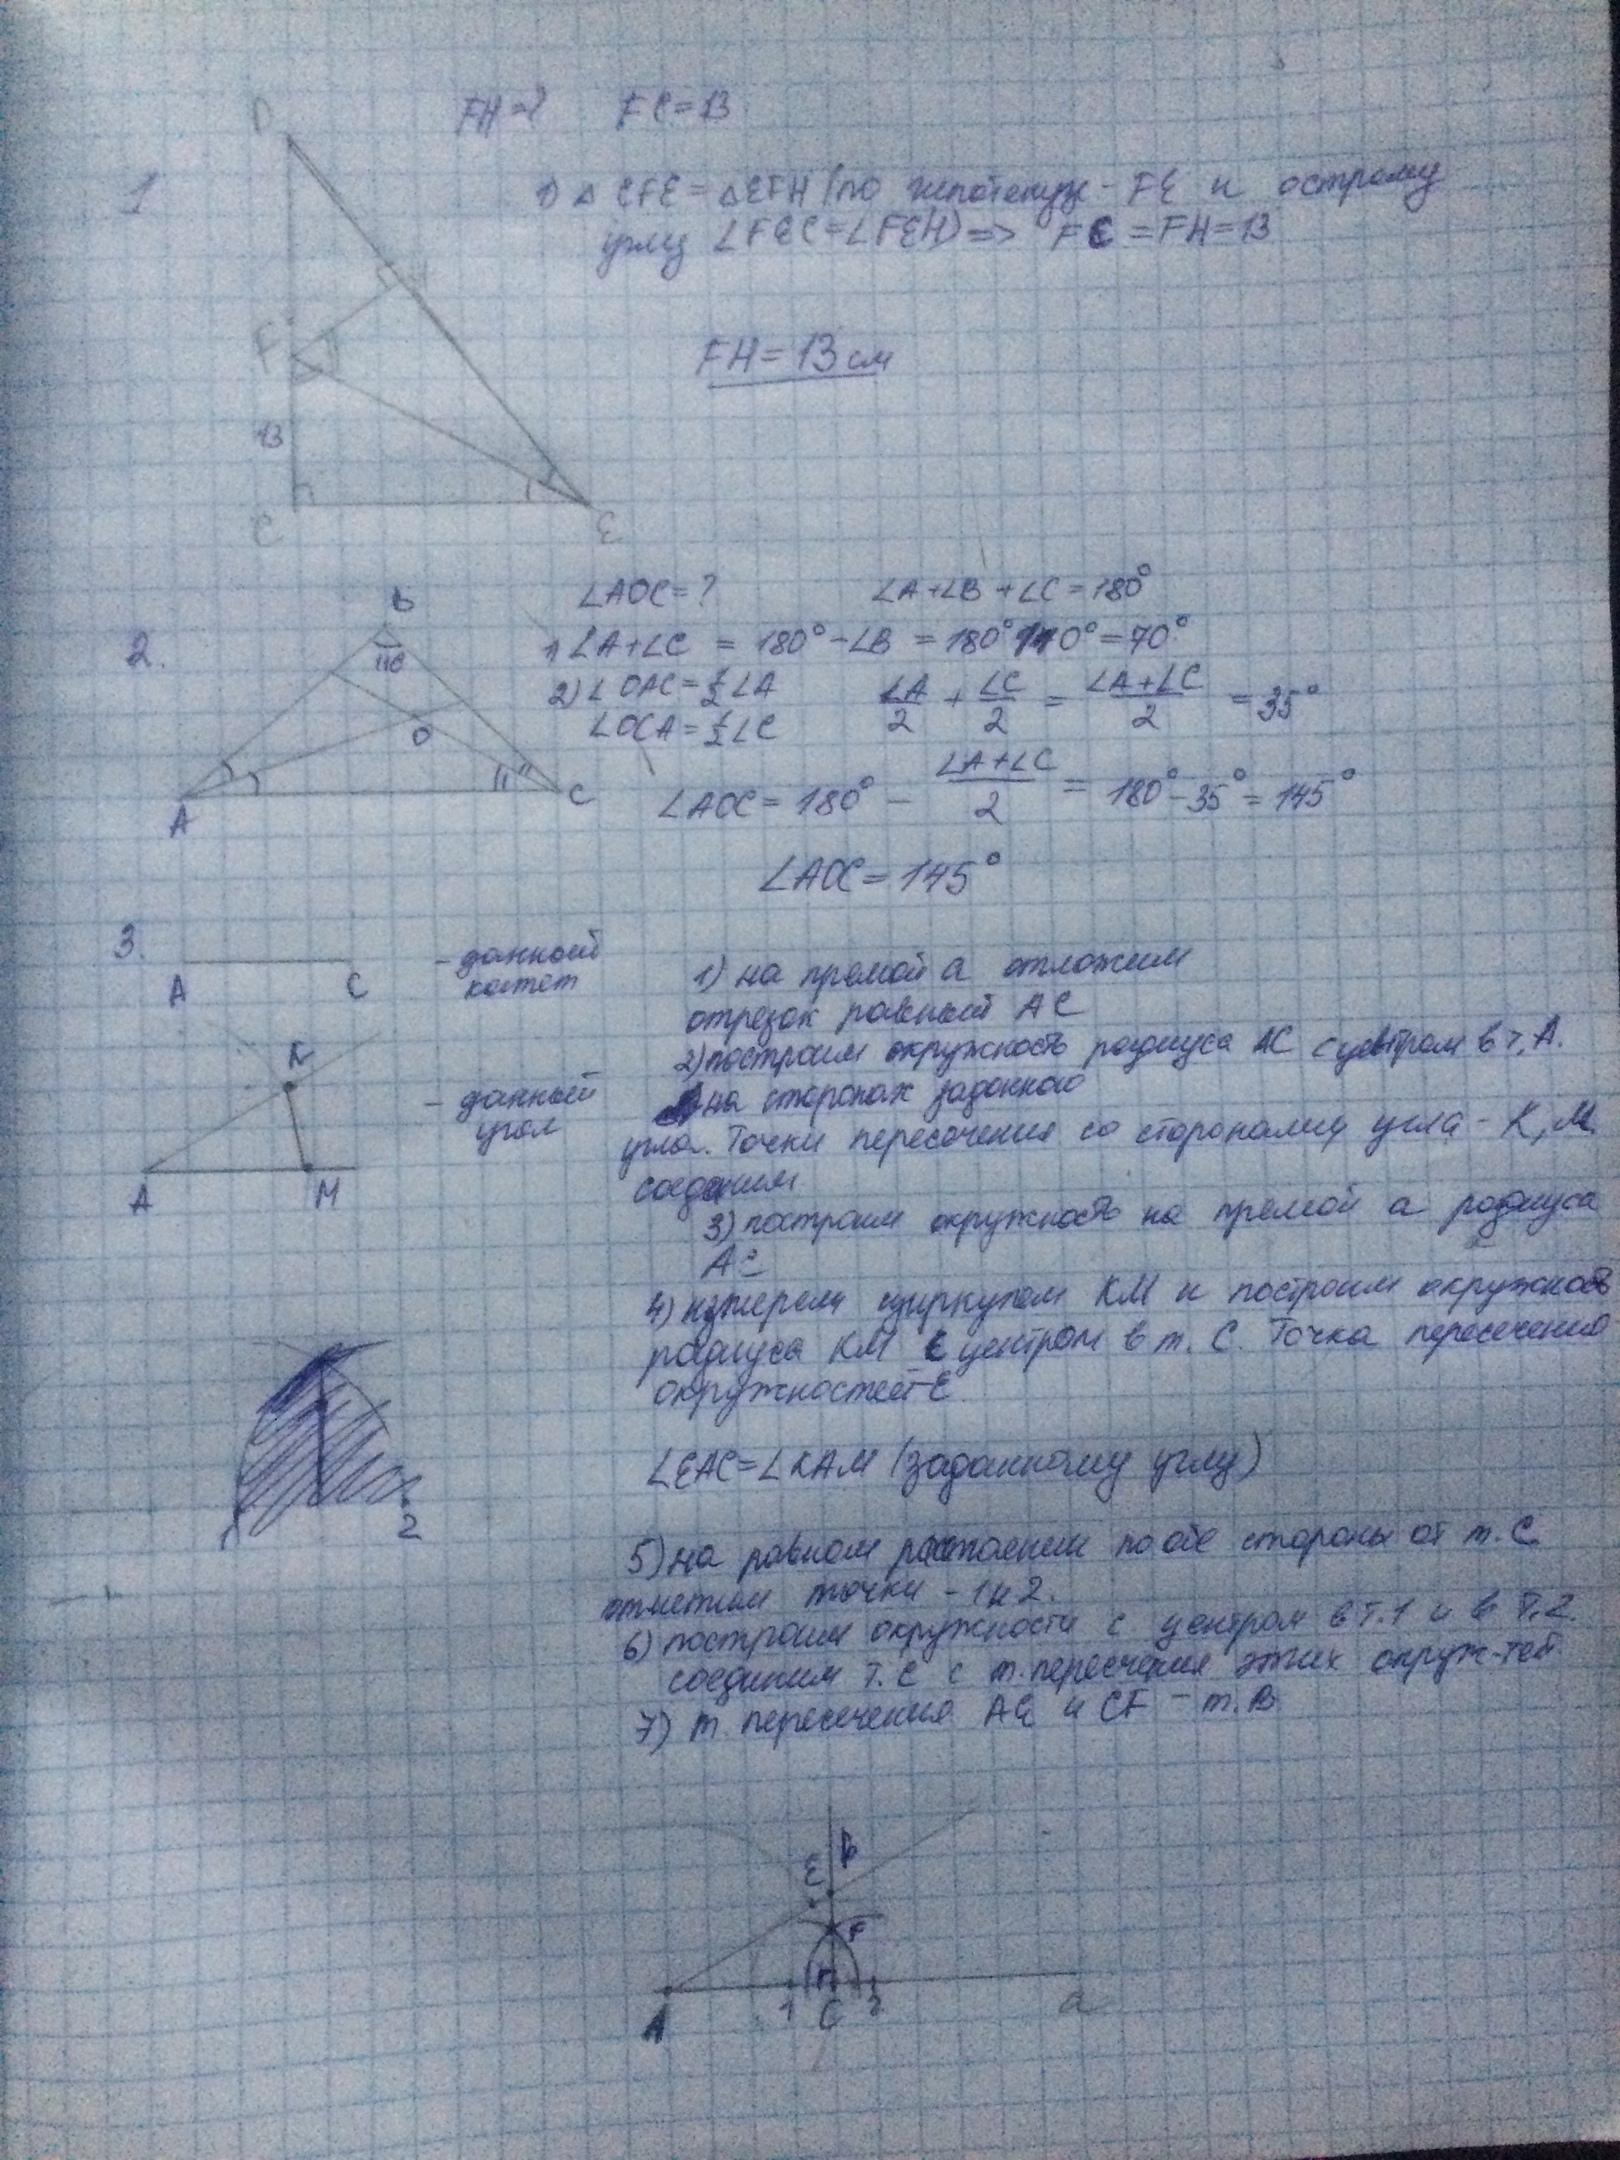 D
FH=? FC=13
1
1) △ CFE = △EFH (по гипотенузе - FE и острому
углу ∠FEC=∠FEH) => FC = FH = 13
H
F
FH = 13 см
13
C E
B
∠AOC = ? ∠A+∠B+∠C = 180°
2.
110
1) ∠A+∠C = 180° - ∠B = 180° 110° = 70°
2) ∠OAC = 1/2 ∠A ∠A/2 + ∠C/2 = (∠A+∠C)/2 = 35°
∠OCA = 1/2 ∠C
O
A C
∠AOC = 180° - (∠A+∠C)/2 = 180° - 35° = 145°
∠AOC = 145°
3.
A C
- данный
катет
1) на прямой а отложим
отрезок равный AC
2) построим окружность радиуса AC с центром в т. A.
K
- данный
угол
на сторонах заданного
угла. Точки пересечения со сторонами угла - K, M.
A M
соединим
3) построим окружность на прямой а радиуса
AC
4) измерим циркулем KM и построим окружность
радиуса KM с центром в т. C. Точка пересечения
окружностей - E
∠EAC = ∠KAM (заданному углу)
1 2
5) на равном расстоянии по обе стороны от т. C
отметим точки - 1 и 2.
6) построим окружности с центром в т. 1 и в т. 2.
соединим т. C с т. пересечения этих окруж-тей.
7) т. пересечения AE и CF - т. B
E B
F
A 1 C 2 a